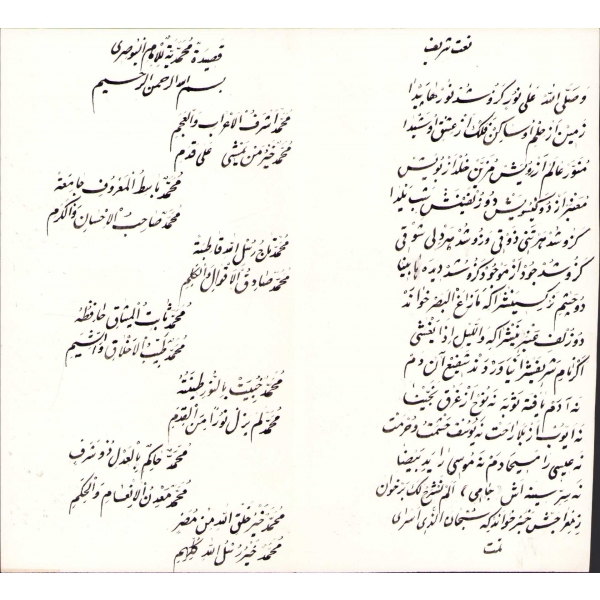 نعت شریف
وَصَلَّی اللّٰه عَلٰی نورٍ کزو شد نورها پیدا
زمین از حلم او ساکن فلک از عشق او شیدا
منور عالم از رویش مزین خلد از بویش
معنبر از دو گیسویش دو زلفینش شب یلدا
کزو شد هر تنی ذوقی وزو شد هر دلی شوقی
کزو شد جود از موجود کزو شد دیده‌ها بینا
دو چشم نرگسینش را که مازاغ البصر خوانَد
دو زلف عنبرینش را که واللیل اذا یغشی
اگر نام شریفش را نیاوردند شفیع آن دم
نه آدم یافته توبه نه نوح از غرق نجینا
نه ایوب از بلا راحت نه یوسف حشمت و حرمت
نه عیسی را مسیحا دم نه موسی را ید بیضا
نه سر سینه‌اش (جامی) الم نشرح لک برخوان
ز معراجش خبر خواند که سبحان الذی اسری
تمت
قصیدة محمدیة للإمام البوصری
بسم الله الرحمن الرحیم
مُحَمَّدٌ أَشْرَفُ الأَعْرَابِ وَالْعَجَمِ
مُحَمَّدٌ خَيْرُ مَنْ يَمْشِي عَلَى قَدَمِ
مُحَمَّدٌ بَاسِطُ الْمَعْرُوفِ جَامِعَةً
مُحَمَّدٌ صَاحِبُ الإِحْسَانِ وَالْكَرَمِ
مُحَمَّدٌ تَاجُ رُسْلِ اللهِ قَاطِبَةً
مُحَمَّدٌ صَادِقُ الأَقْوَالِ وَالْكَلِمِ
مُحَمَّدٌ ثَابِتُ الْمِيثَاقِ حَافِظُهُ
مُحَمَّدٌ طَيِّبُ الأَخْلَاقِ وَالشِّيَمِ
مُحَمَّدٌ خُبِيَتْ بِالنُّورِ طِينَتُهُ
مُحَمَّدٌ لَمْ يَزَلْ نُورًا مِنَ الْقِدَمِ
مُحَمَّدٌ حَاكِمٌ بِالْعَدْلِ ذُو شَرَفٍ
مُحَمَّدٌ مَعْدِنُ الإِنْعَامِ وَالْحِكَمِ
مُحَمَّدٌ خَيْرُ خَلْقِ اللهِ مِنْ مُضَرٍ
مُحَمَّدٌ خَيْرُ رُسْلِ اللهِ كُلِّهِمِ